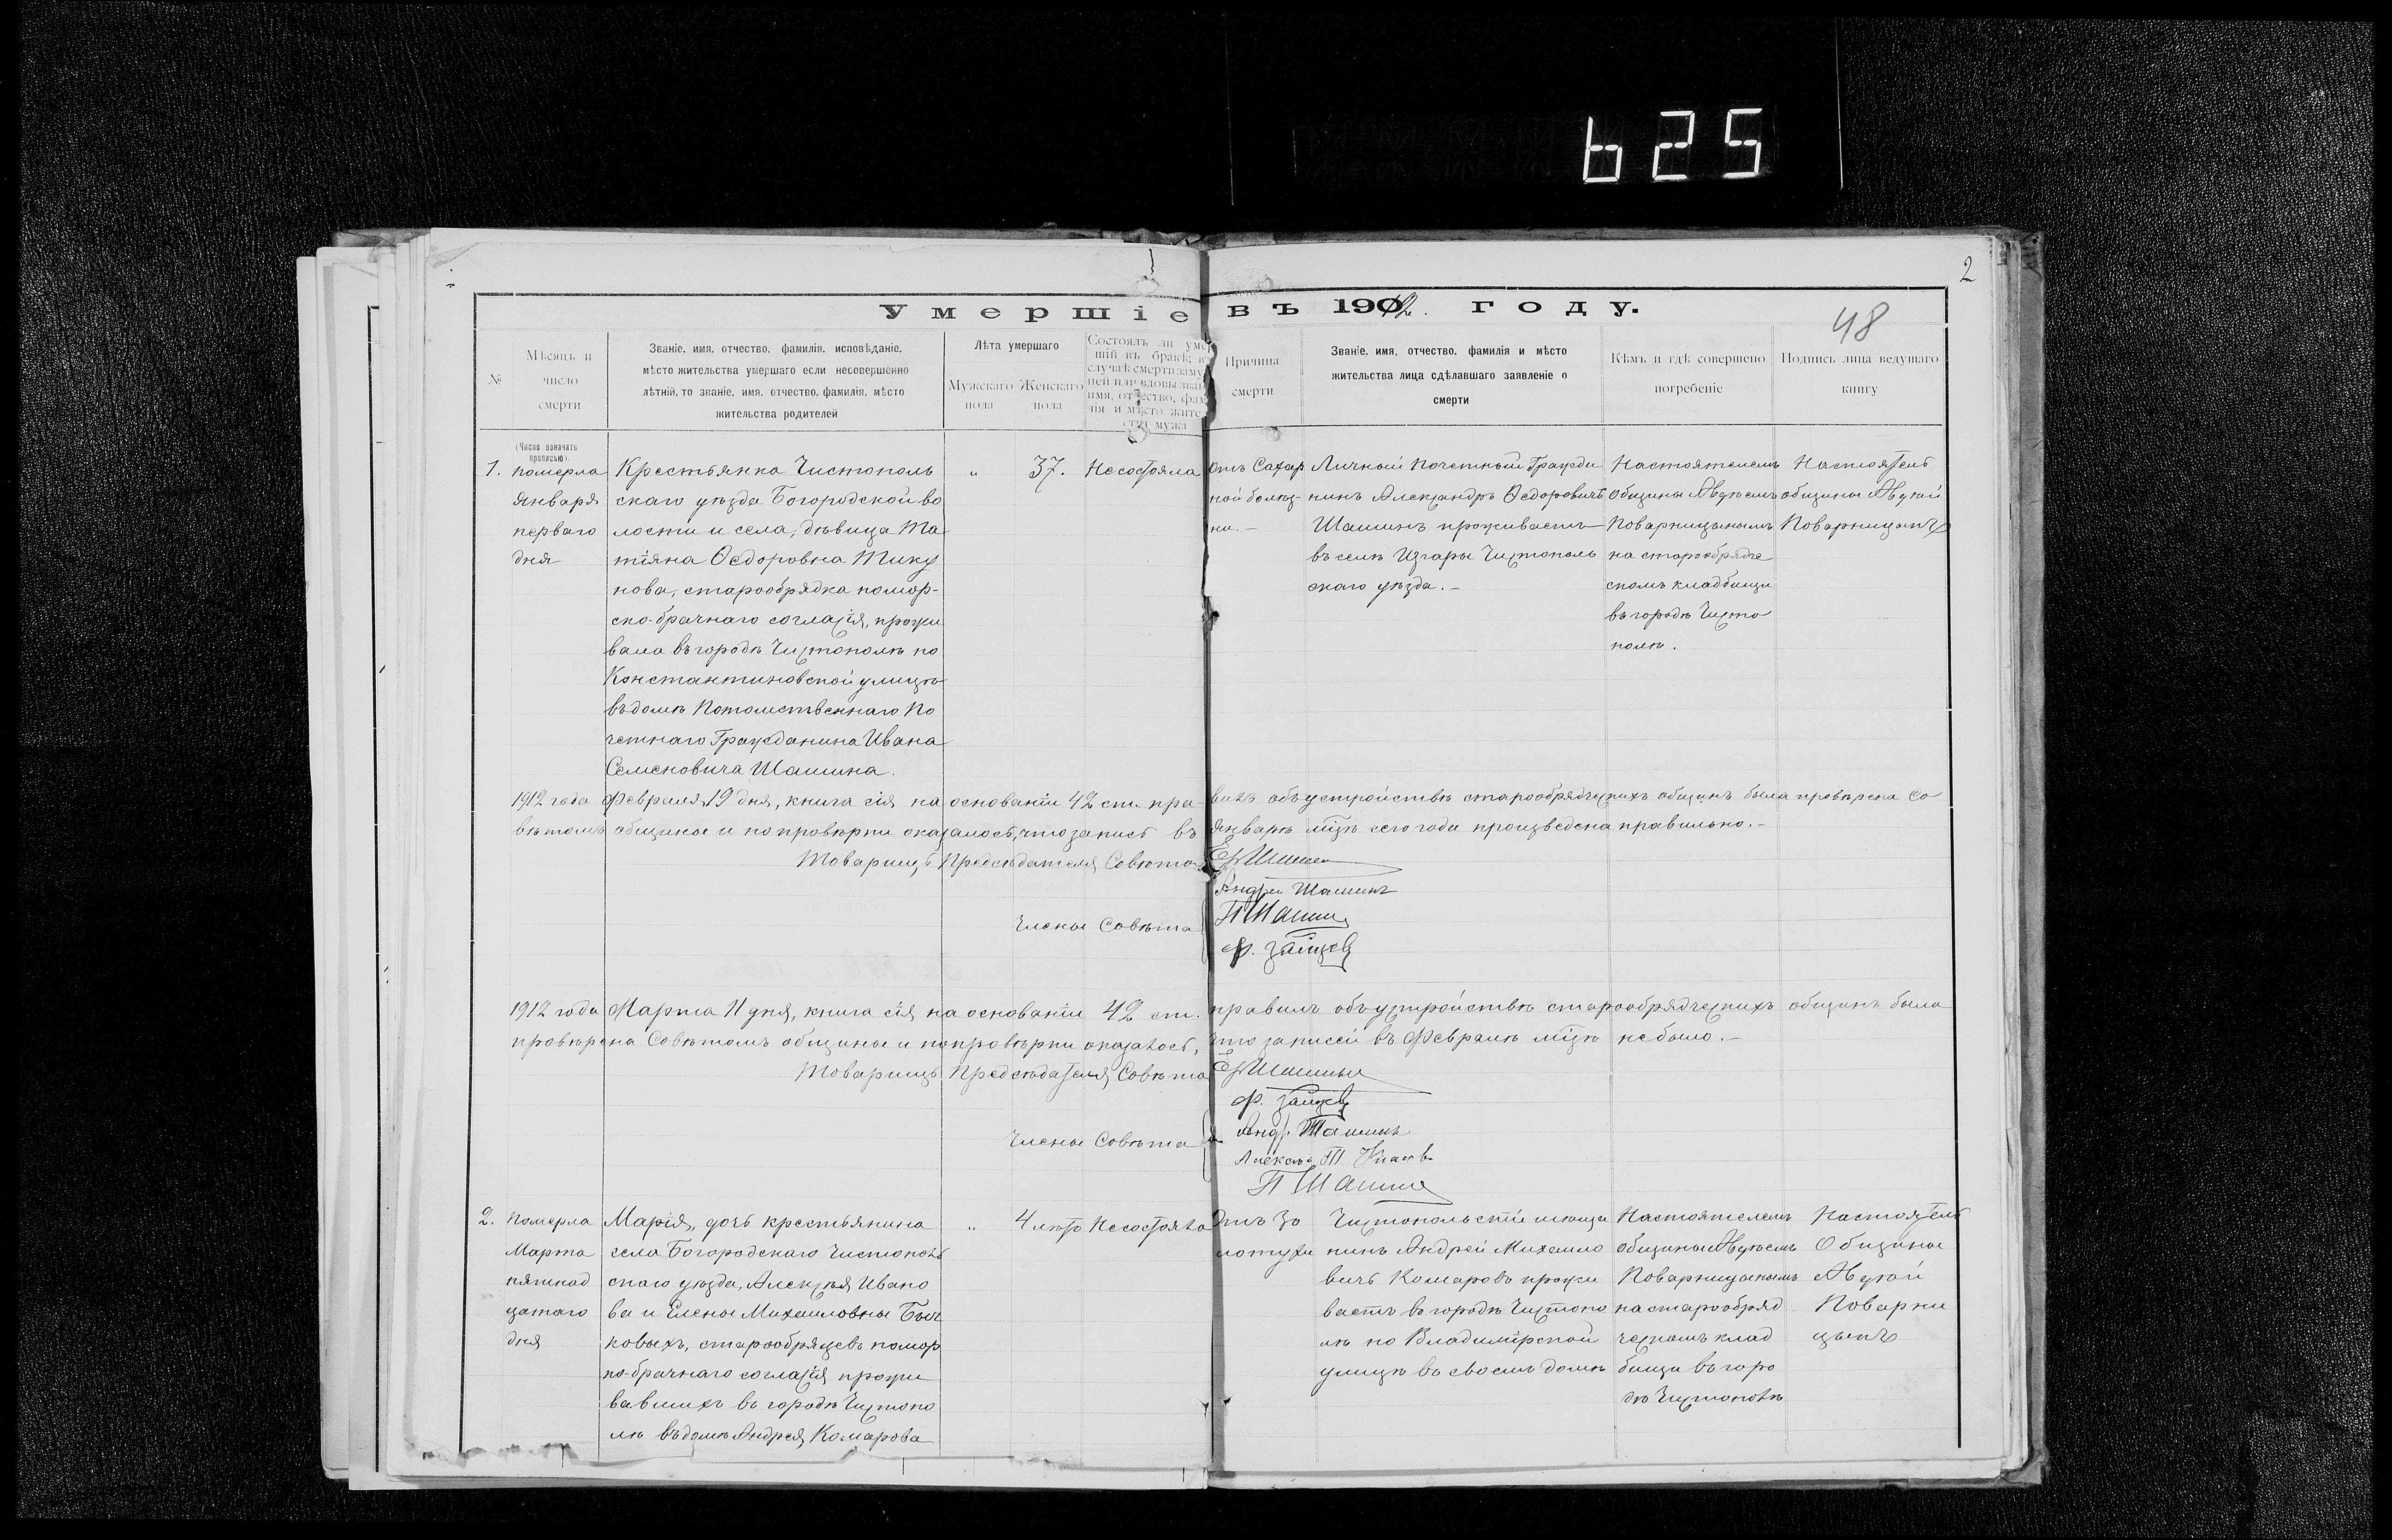 625
2
48
Умершіе въ 1912 году.
№
Мѣсяцъ и
число
смерти
Званіе, имя, отчество, фамилія, исповѣданіе,
мѣсто жительства умершаго если несовершенно
лѣтній, то званіе, имя, отчество, фамилія, мѣсто
жительства родителей
Лѣта умершаго
Мужскаго
пола
Женскаго
пола
Состоялъ ли умер
шій въ бракѣ; въ
случаѣ смерти заму
ней или вдовы зван
имя, отчество, фам
лія и мѣсто жите
мужа
Причина
смерти
Званіе, имя, отчество, фамилія и мѣсто
жительства лица сдѣлавшаго заявленіе о
смерти
Кѣмъ и гдѣ совершено
погребеніе
Подпись лица ведущаго
книгу
(Число означать
прописью).
1.
померла
Января
перваго
дня
Крестьянка Чистополь
скаго уѣзда Богородской во
лости и села, дѣвица Та
тіяна Ѳедоровна Тику
нова, старообрядка помор-
ско-брачнаго согласія, прожи
вала въ городѣ Чистополѣ по
Константиновской улицѣ
въ домѣ Потомственнаго По
четнаго Гражданина Ивана
Семеновича Шашина.
"
37.
Несостояла
отъ Сахар
ной болѣз-
ни.-
Личный Почетный Гражда
нинъ Александръ Ѳедоровичъ
Шашинъ проживаетъ
въ селѣ Изгары Чистополь
скаго уѣзда.-
Настоятелемъ
общины Авдѣемъ
Поварницынымъ
на старообрядче
скомъ кладбищи
въ городѣ Чисто
полѣ.
Настоятель
общины Авдѣй
Поварницынъ
1912 года Февраля 19 дня, книга сія на основаніи 42 ст. пра- вилъ объ устройствѣ старообрядческихъ общинъ была провѣрена Со
вѣтомъ общины и по провѣрки оказалось, что запись въ Январѣ мцѣ сего года произведена правильно.-
Товарищъ Предсѣдателя Совѣта
Андрей Шашинъ
Члены Совѣта
П Шашин
Ф. Зайцев
1912 года Марта 11 дня, книга сія на основаніи 42 ст. правилъ объ устройствѣ старообрядческихъ общинъ была
провѣрена Совѣтомъ общины и по провѣрки оказалось, что записей въ Февралѣ мцѣ не было.-
Товарищъ Предсѣдателя Совѣта
Ф. Зайцев
Члены Совѣта
Анд. Шашинъ
П Шашин
2.
Померла
Марта
пятнад
цатаго
дня
Марія, дочь крестьянина
села Богородскаго Чистополь
скаго уѣзда, Алексѣя Ивано
ва и Елены Михаиловны Быч
ковыхъ, старообрядцевъ помор
ко-брачнаго согласія прожи
вавшихъ въ городѣ Чистопо
лѣ въ домѣ Андрея Комарова
"
4 лѣтъ
Несостояла
Отъ Зо
лотухи
Чистопольскій мѣща
нинъ Андрей Михаило
вичъ Комаровъ прожи
ваетъ въ городѣ Чистопо
лѣ по Владимірской
улицѣ въ своемъ домѣ
Настоятелемъ
общины Авдѣемъ
Поварницынымъ
на старообряд
ческомъ клад
бищи въ горо
дѣ Чистополѣ
Настоятель
Общины
Авдѣй
Поварни
цынъ